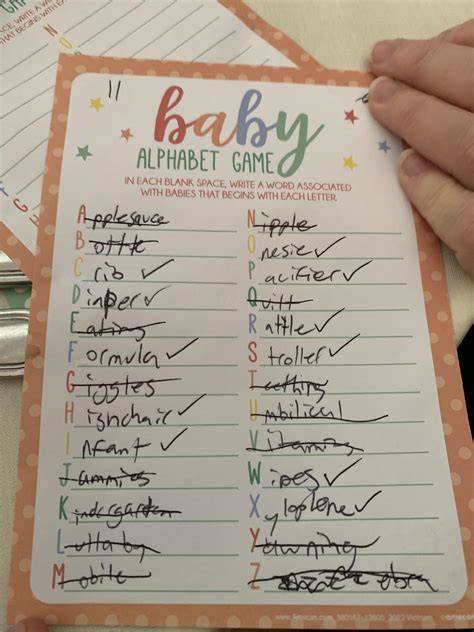 11
baby
ALPHABET GAME
IN EACH BLANK SPACE, WRITE A WORD ASSOCIATED
WITH BABIES THAT BEGINS WITH EACH LETTER.
Applesauce
Bottle
Crib ✓
Diaper ✓
Eating
Formula ✓
Giggles
Highchair ✓
Infant ✓
Jammies
Kindergarten
Lullaby
Mobile
Nipple
Onesie ✓
Pacifier ✓
Quilt
Rattle ✓
Stroller ✓
Teething
Umbilical
Vitamins
Wipes ✓
Xylophone ✓
Yawning
Z